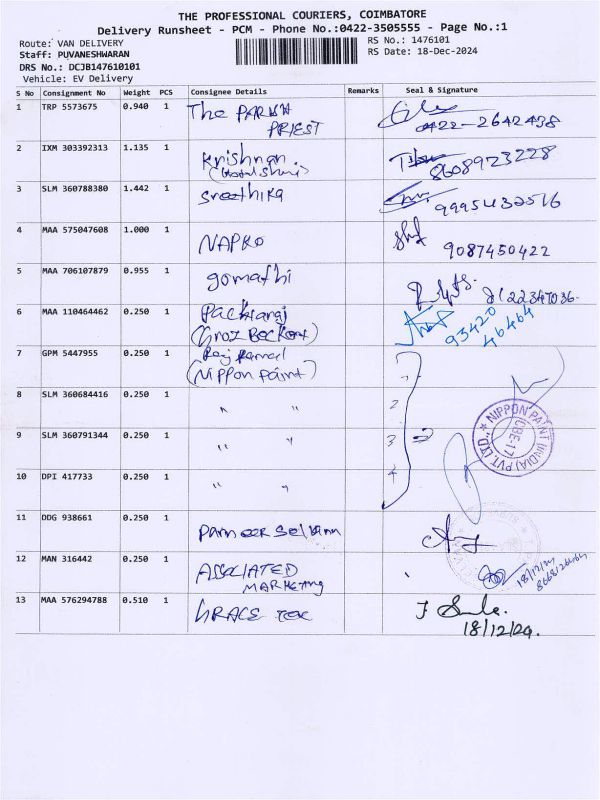 THE PROFESSIONAL COURIERS, COIMBATORE
Delivery Runsheet - PCM - Phone No.:0422-3505555 - Page No.:1
Route: VAN DELIVERY
RS No.: 1476101
Staff: PUVANESHWARAN
RS Date: 18-Dec-2024
DRS No.: DCJB147610101
Vehicle: EV Delivery
S No Consignment No Weight PCS Consignee Details Remarks Seal & Signature
1 TRP 5573675 0.940 1 The PARISH
PRIEST
0422-2642438
2 IXM 303392313 1.135 1 Krishnan
8608923228
3 SLM 360788380 1.442 1 Sreethika
9995432516
4 MAA 575047608 1.000 1 NAPKO
9087450422
5 MAA 706107879 0.955 1 gomathi
6 MAA 110464462 0.250 1 Packiaraj
(Groz Beckert)
93420
46464
7 GPM 5447955 0.250 1 Raj Kamal
(Nippon Paint)
8 SLM 360684416 0.250 1 " " 2
9 SLM 360791344 0.250 1 " " 3
NIPPON PAINT (INDIA) PVT. LTD.
CBE-17
10 DPI 417733 0.250 1 " " 4
11 DDG 938661 0.250 1 Panneer Selvam
12 MAN 316442 0.250 1 ASSOCIATED
MARKETING
18/12/24
13 MAA 576294788 0.510 1 GRACE
18/12/24.